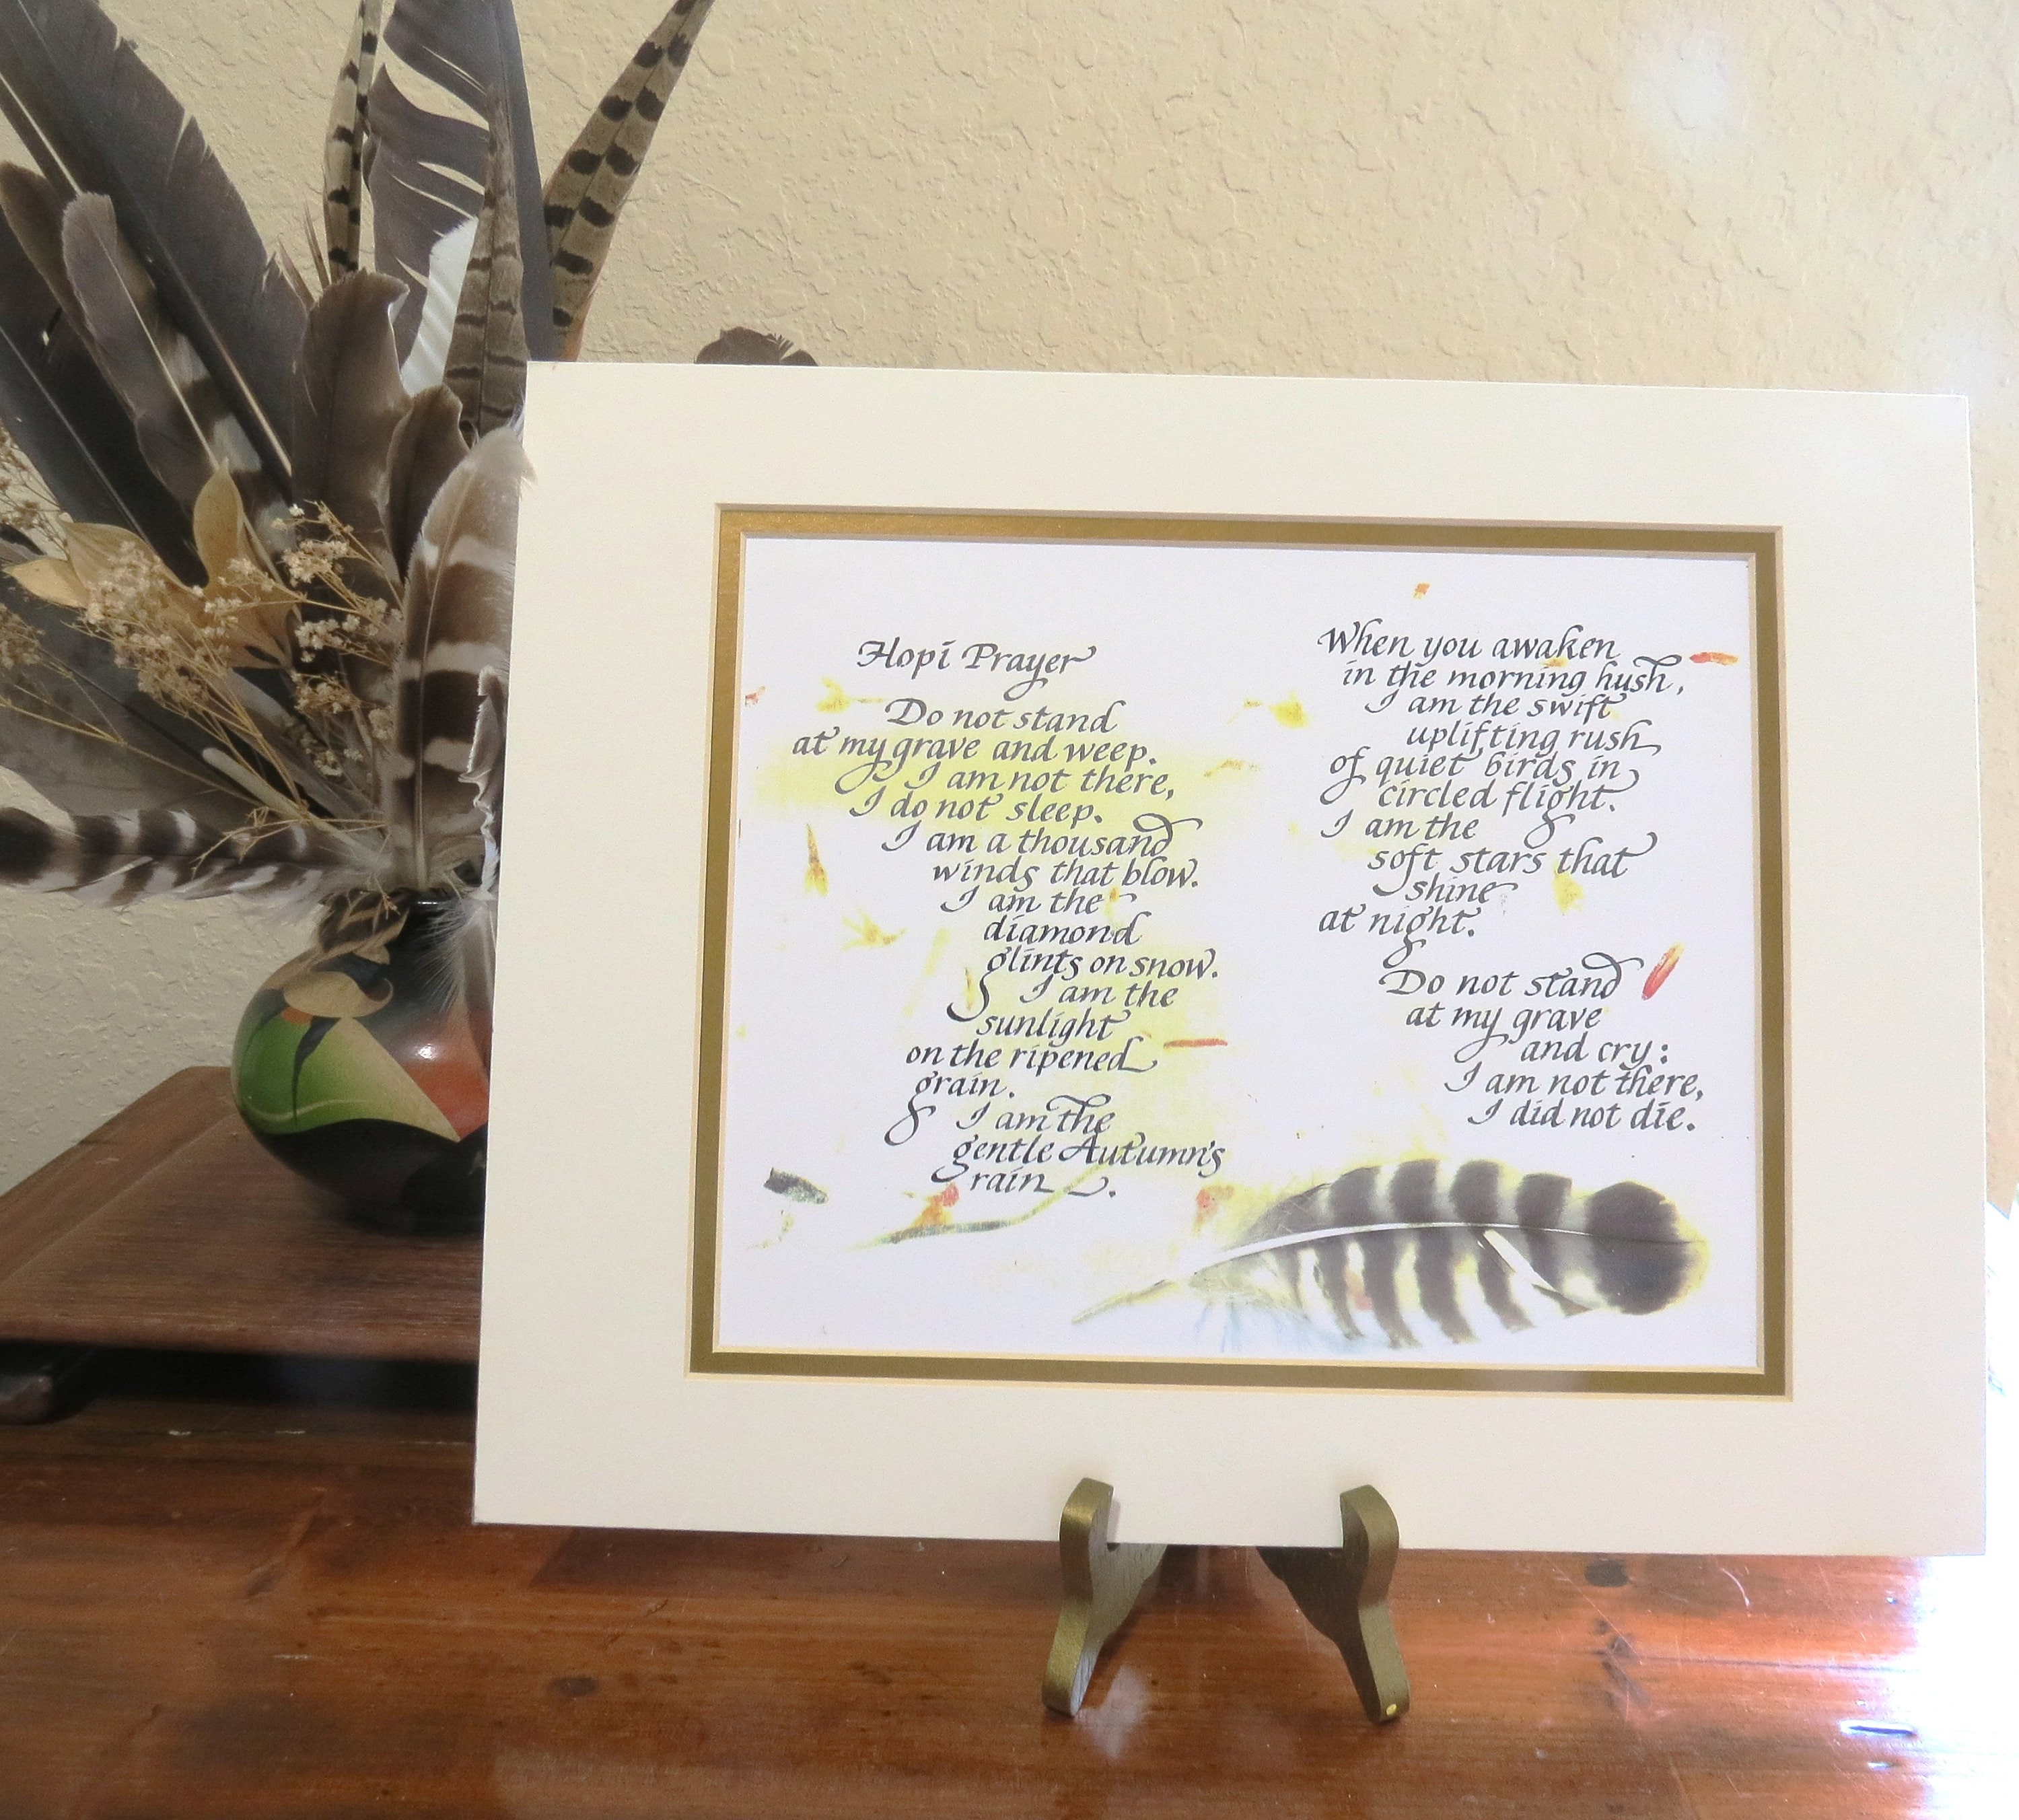 Hopi Prayer
Do not stand
at my grave and weep.
I am not there,
I do not sleep.
I am a thousand
winds that blow.
I am the
diamond
glints on snow.
I am the
sunlight
on the ripened
grain.
I am the
gentle Autumn's
rain.
When you awaken
in the morning hush,
I am the swift
uplifting rush
of quiet birds in
circled flight.
I am the
soft stars that
shine
at night.
Do not stand
at my grave
and cry:
I am not there,
I did not die.